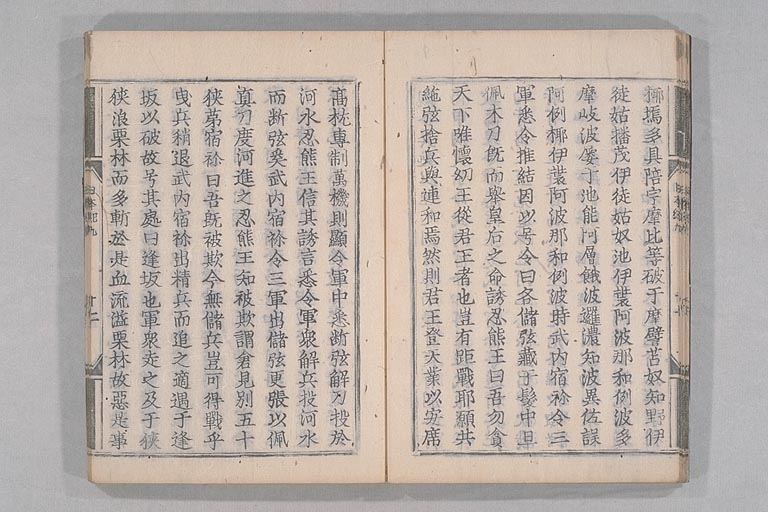 揶塢多具陪宇摩比等破于摩譬苔奴知野伊
徒姑播茂伊徒姑奴池伊裝阿波那和例波多
摩岐波屢于池能阿層餓波邏濃知波異佐誤
阿例椰伊裝阿波那和例波時武內宿祢令三
軍悉令推結因以号令曰各儲弦藏于髮中且
佩木刀既而舉皇后之命誘忍熊王曰吾勿貪
天下唯懷幼王從君王者也豈有距戰耶願共
絶弦捨兵與連和焉然則君王登天業以安席
高枕專制萬機則顯令軍中悉斷弦解刀投於
河水忍熊王信其誘言悉令軍衆解兵投河水
而斷弦爰武內宿祢令三軍出儲弦更張以佩
真刀度河進之忍熊王知被欺謂倉見別五十
狹茅宿祢曰吾既被欺今無儲兵豈可得戰乎
曳兵稍退武內宿祢出精兵而追之適遇于逢
坂以破故号其處曰逢坂也軍衆走之及于狹
狹浪栗林而多斬於是血流溢栗林故惡是事